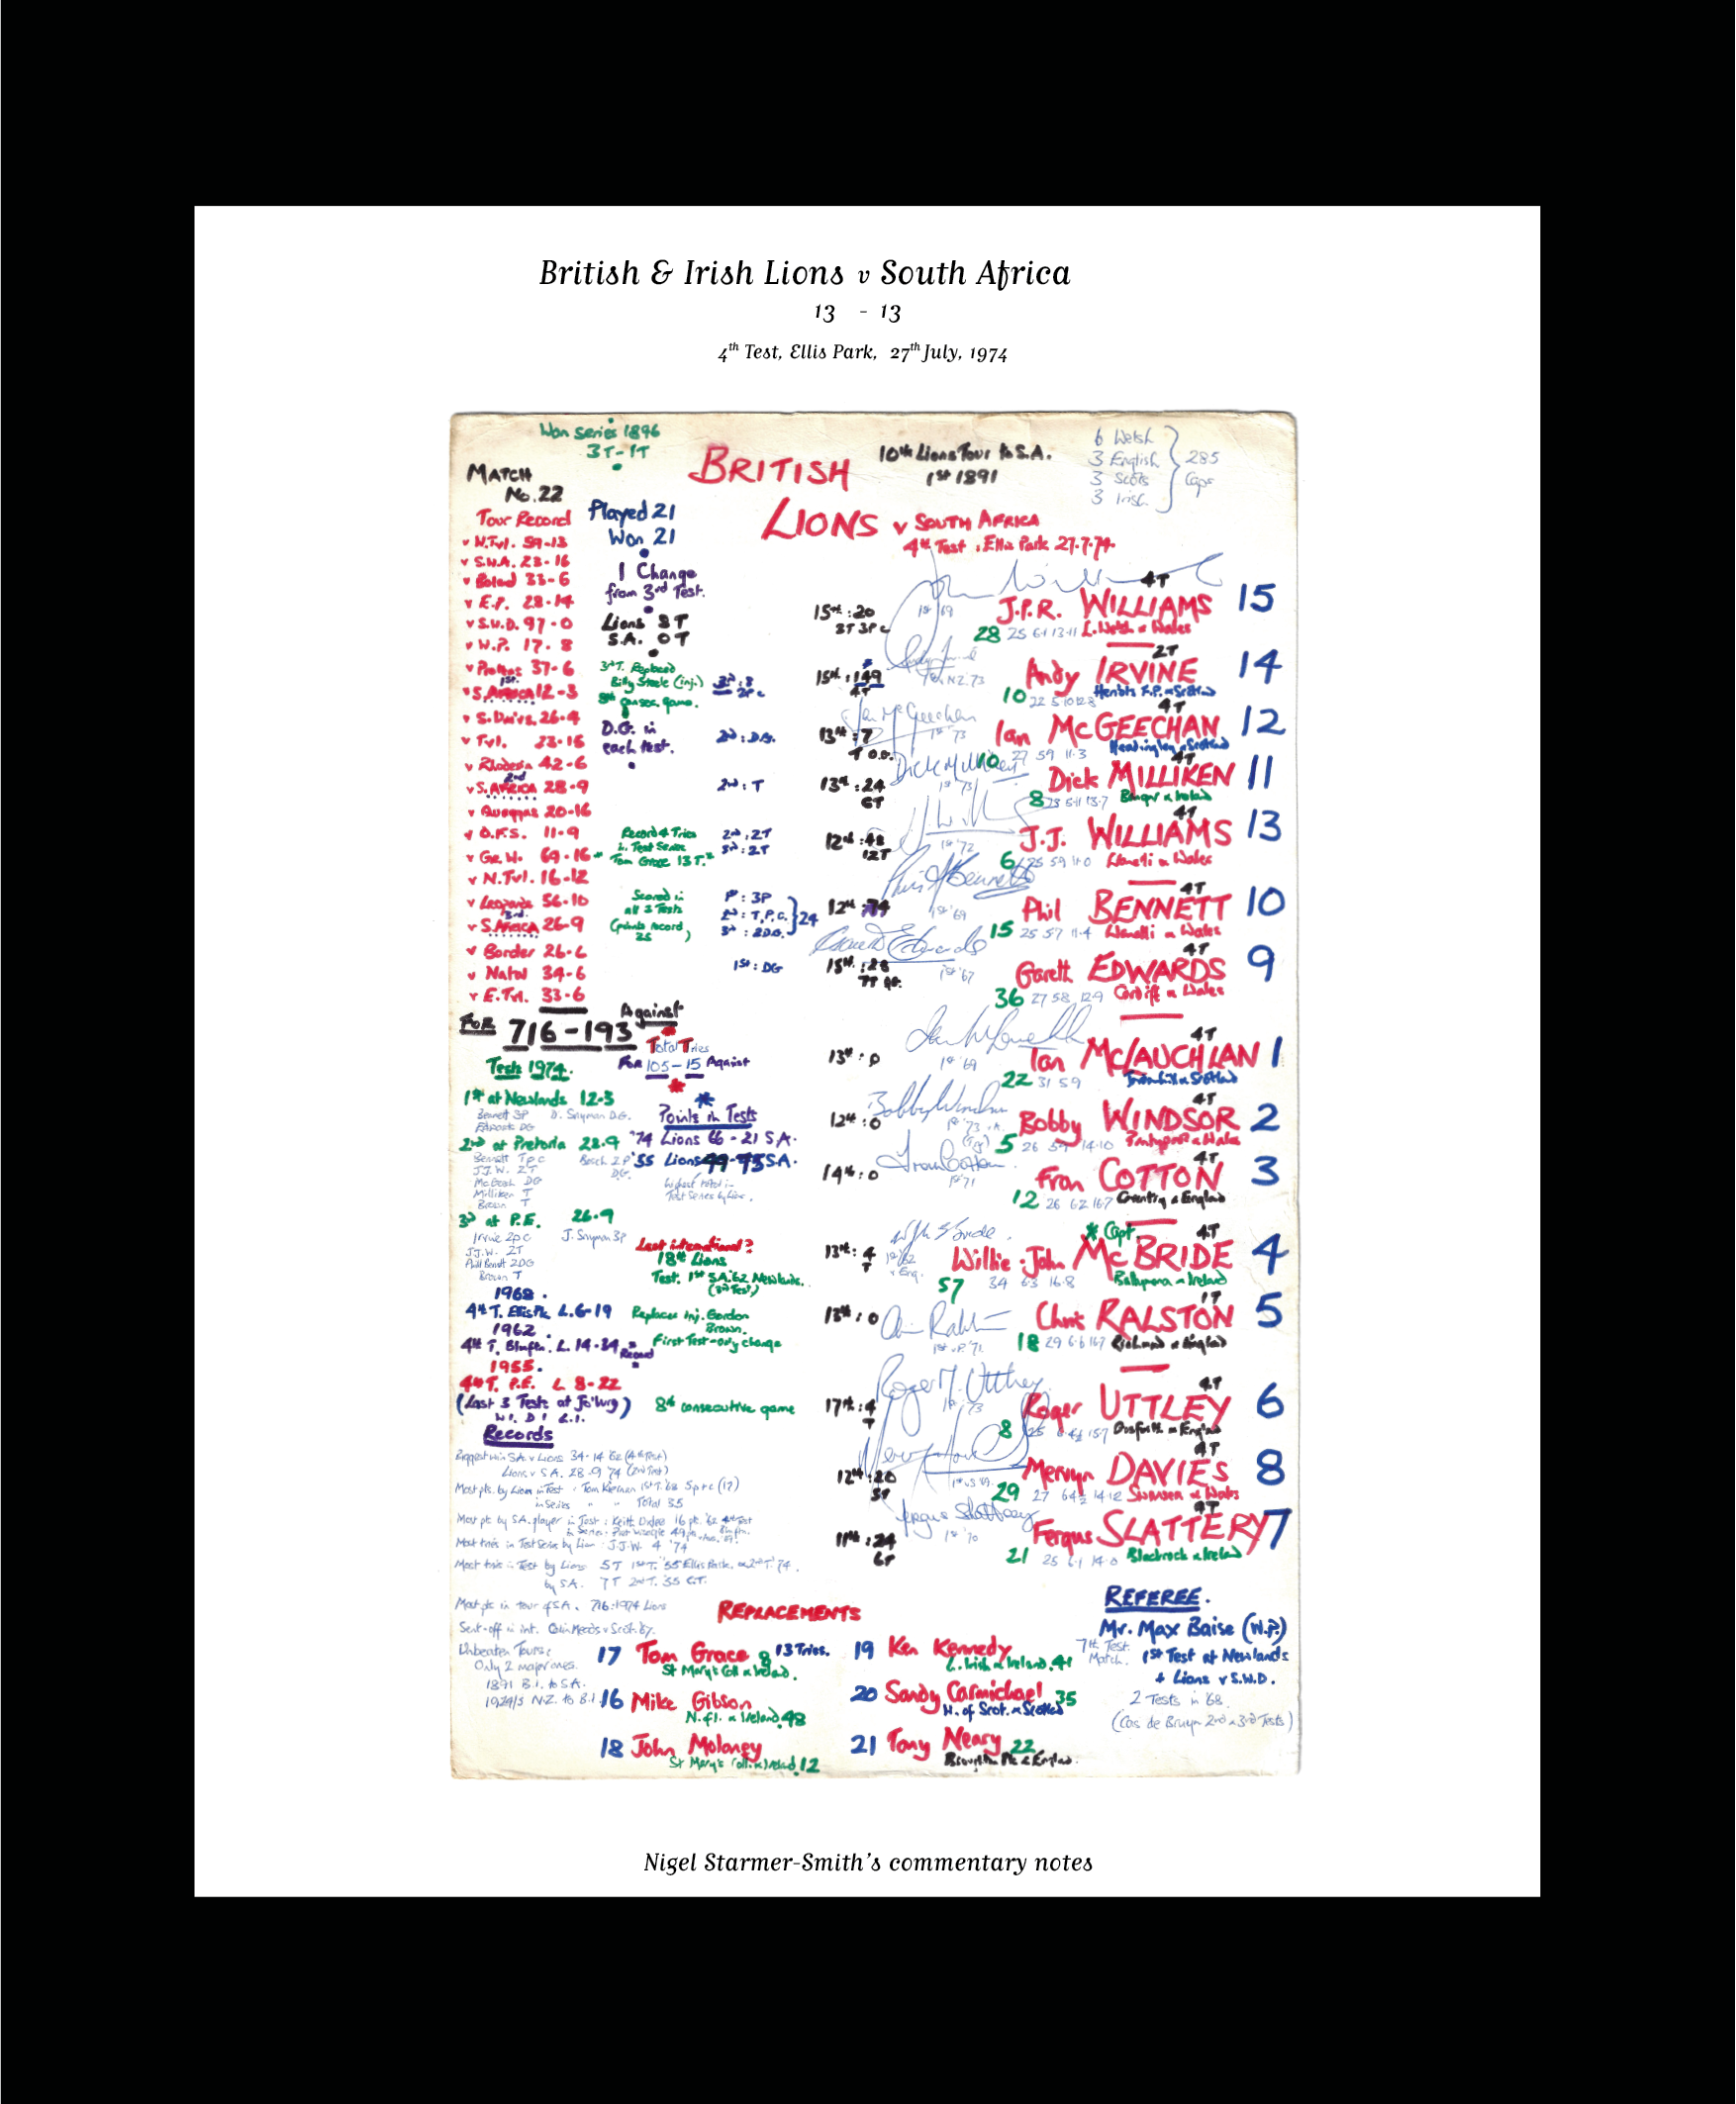 British & Irish Lions v South Africa
13 - 13
4th Test, Ellis Park, 27th July, 1974
Won Series 1896
3T - 1T
MATCH
No. 22
BRITISH
LIONS v SOUTH AFRICA
4th Test : Ellis Park 27.7.74
10th Lions Tour to S.A.
1st 1891
6 Welsh
3 English
3 Scots
3 Irish
285
Caps
Tour Record
v N.Tvl. 59-13
v S.W.A. 23-16
v Boland 33-6
v E.P. 28-14
v S.W.D. 97-0
v W.P. 17-8
v Proteas 37-6
1st
v S. AFRICA 12-3
v S. Univs. 26-4
v Tvl. 23-16
v Rhodesia 42-6
2nd
v S. AFRICA 28-9
v Quaggas 20-16
v O.F.S. 11-9
v Gr. W. 69-16
v N.Tvl. 16-12
v Leopards 56-10
3rd
v S. AFRICA 26-9
v Border 26-6
v Natal 34-6
v E.Tvl. 33-6
FOR 716-193 Against
Played 21
Won 21
1 Change
from 3rd Test.
Lions 3T
S.A. 0T
3rd T. Replaced
Billy Steele (inj.)
8th consec. game.
D.G. in
each test.
Record 4 Tries
L. Test Series
Tom Grace 13 T.
Scored in
all 3 Tests
(points record
Total Tries
For 105-15 Against
Points in Tests
'74 Lions 66 - 21 S.A.
'55 Lions - 75 S.A.
highest total in
Test Series by Lions.
Tests 1974.
1st at Newlands 12-3
Bennett 3P D. Snyman D.G.
Edwards DG
2nd at Pretoria 28-9
Bennett T p c
Bosch 2P
D.G.
J.J.W. 2T
McGeech DG
Milliken T
Brown T
3rd at P.E. 26-9
Irvine 2p c J. Snyman 3p
J.J.W. 2T
Phil Bennett 2DG
Brown T
1968.
4th T. Ellis Pk L. 6-19
1962.
4th T. Bloemfn. L. 14-34 Record
1955.
4th T. P.E. L 8-22
(Last 3 Tests at Jo'burg)
W1. D1 L1.
Last international?
18th Lions
Test. 1st S.A. '62 Newlands.
(3rd Test)
Replaces inj. Gordon
Brown.
First Test - only change
8th consecutive game
Records
Biggest win S.A. v Lions 34-14 '62 (4th Test)
Lions v S.A. 28-9 '74 (2nd Test)
Most pts. by Lion in Test : Tom Kiernan 1st T. '68 5p + c (17)
in Series " " Total 35
Most pts by S.A. player in Test : Keith Oxlee 16 pts. '62 4th Test
Most tries in Test Series by Lion : J.J.W. 4 '74
Most tries in Test by Lions 5T 1st T. '55 Ellis Park. 2nd T. '74.
by S.A. 7T 2nd T. '55 C.T.
Most pts in tour of S.A. 716 : 1974 Lions
Sent-off in int. Colin Meads v Scot. '67.
Unbeaten Tours:
Only 2 major ones.
1891 B.I. to S.A.
1924/5 N.Z. to B.I.
15th : 20
2T 3P c
4T
J.P.R. WILLIAMS 15
1st '69
28 25 6·1 13·11 L. Welsh & Wales
2T
15th : 149
4T
Andy IRVINE 14
1st v N.Z. 73
10 22 5·10 12·8 Heriots F.P. & Scotland
4T
2nd : D.G.
13th : 7
Ian McGeechan
Ian McGEECHAN 12
1st '73
10 27 5·9 11·3 Headingley & Scotland
4T
2nd : T
13th : 24
6T
Dick Milliken
Dick MILLIKEN 11
1st '73
8 23 5·11 13·7 Bangor & Ireland
4T
2nd : 2T
3rd : 2T
12th : 48
12T
J.J. WILLIAMS 13
1st '72
6 25 5·9 11·0 Llanelli & Wales
4T
1st : 3P
2nd : T, P, C.
3rd : 2 D.G.
24
12th :
Phil Bennett
Phil BENNETT 10
1st '69
15 25 5·7 11·4 Llanelli & Wales
4T
1st : DG
15th : 28
Gareth Edwards
Gareth EDWARDS 9
1st '67
36 27 5·8 12·9 Cardiff & Wales
4T
13th : 0
Ian McLAUCHLAN 1
1st '69
22 31 5·9 Jordanhill & Scotland
4T
12th : 0
Bobby Windsor
Bobby WINDSOR 2
1st '73
5 26 5·9 14·10 Pontypool & Wales
4T
14th : 0
Fran Cotton
Fran COTTON 3
1st '71
12 26 6·2 16·7 Coventry & England
* Capt. 4T
13th : 4
T
Willie-John McBRIDE 4
1st '62
v Eng.
57 34 6·3 16·8 Ballymena & Ireland
1T
13th : 0
Chris RALSTON 5
1st v P. '71
18 29 6·6 16·7 Richmond & England
4T
17th : 4
T
Roger M. Uttley
Roger UTTLEY 6
1st '73
8 25 6·4½ 15·7 Gosforth & England
4T
12th : 20
5T
Mervyn DAVIES 8
1st v S '69
29 27 6·4½ 14·12 Swansea & Wales
4T
11th : 24
6T
Fergus Slattery
Fergus SLATTERY 7
1st '70
21 25 6·1 14·0 Blackrock & Ireland
REPLACEMENTS
17 Tom Grace 8 13 Tries.
St Mary's Coll & Ireland.
16 Mike Gibson
N.F.I. & Ireland 48
18 John Moloney
St Mary's Coll. & Ireland. 12
19 Ken Kennedy
L. Irish & Ireland. 41
20 Sandy Carmichael 35
W. of Scot. & Scotland
21 Tony Neary 22
Broughton Pk & England.
REFEREE.
Mr. Max Baise (W.P.)
7th Test
Match.
1st Test at Newlands
+ Lions v S.W.D.
2 Tests in '68.
(Cas de Bruyn 2nd & 3rd Tests)
Nigel Starmer-Smith's commentary notes